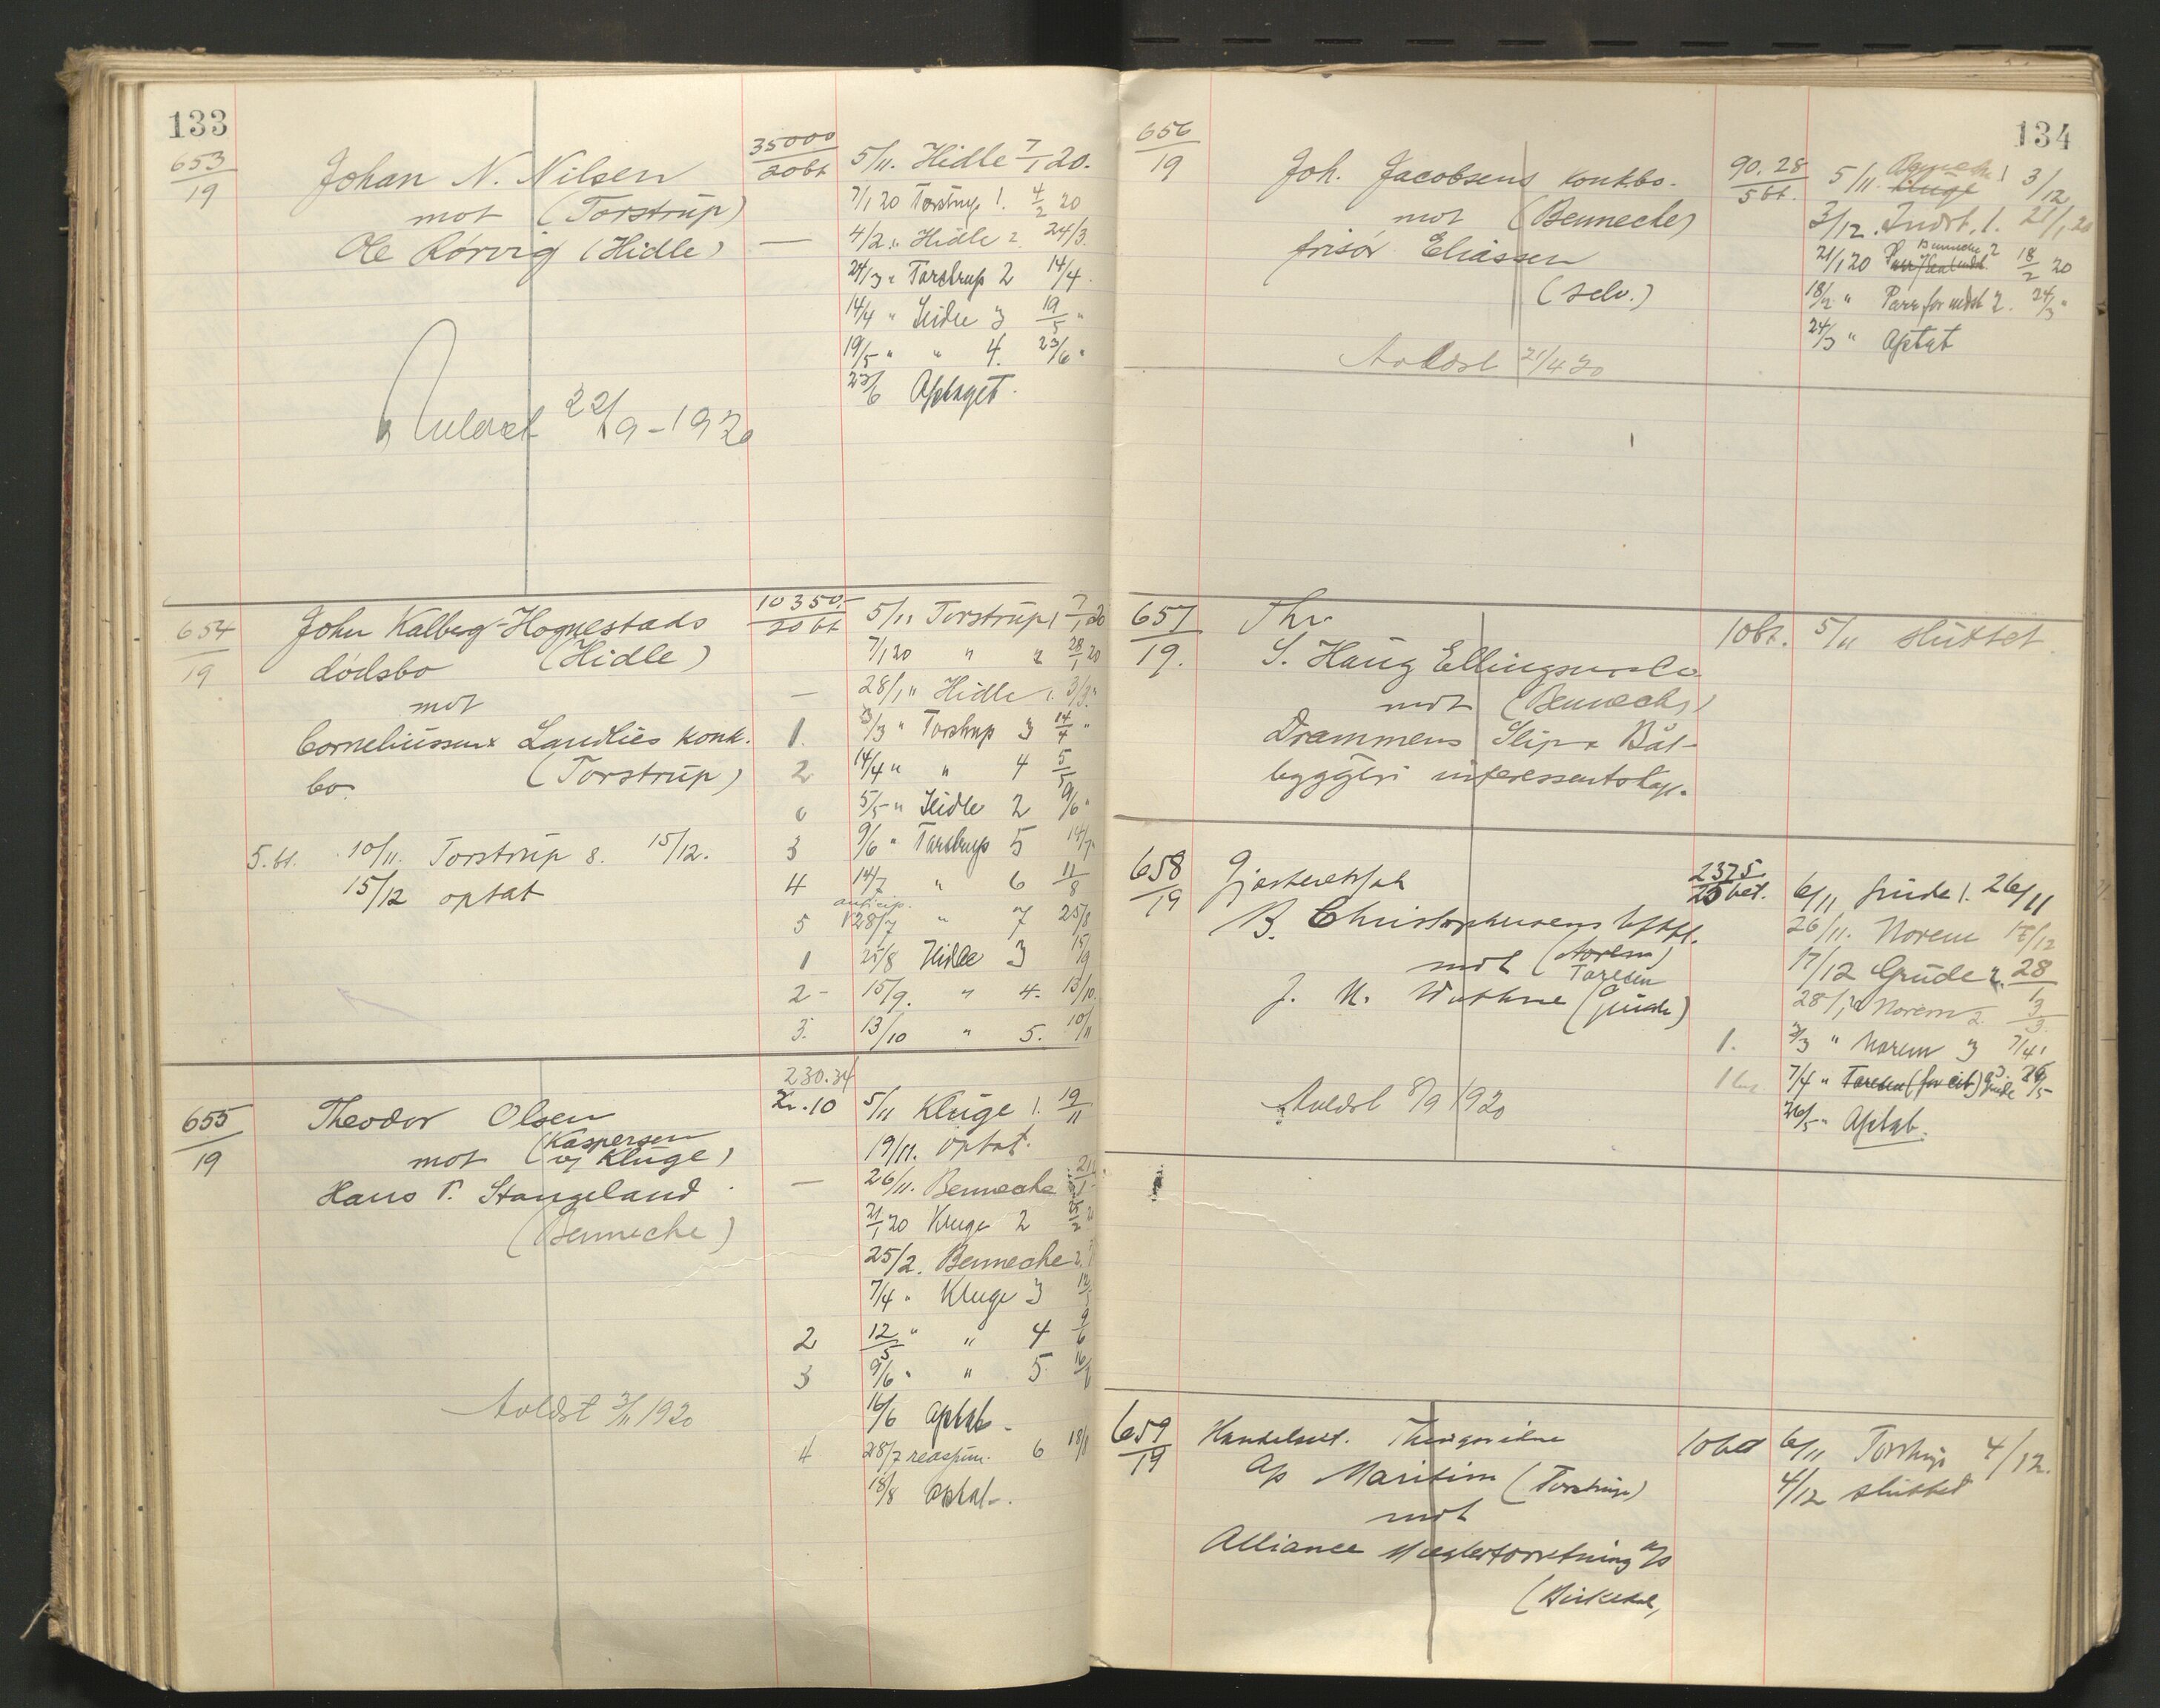 133
653/19
Johan N. Nilsen
mot (Torstrup)
Ole Rørvig (Hidle)
35000
20 bt
5/11. Hidle 7/1 20.
7/1 20 Torstrup 1. 4/2 20
4/2 " Hidle 2. 24/3.
24/3 " Torstrup 2 14/4.
14/4 " Hidle 3 19/5 "
19/5 " " 4. 23/6 "
23/6 Optaget.
22/9 - 1920
654/19
John Kalberg-Hognestads
dødsbo (Hidle)
mot
Corneliussen & Landlies konk.
bo. (Torstrup)
5. bt. 10/11. Torstrup 8. 15/12.
15/12 optat
10350.-
20 bt
5/11 Torstrup 1 7/1 20
7/1 20 " 2 28/1 20
— 28/1 " Hidle 1. 3/3 "
1. 3/3 " Torstrup 3 14/4 "
2 14/4 " " 4 5/5
0 5/5 " Hidle 2 9/6 "
3 9/6 " Torstrup 5 14/7
4 14/7 " 6 11/8
anticip.
5 28/7 " 7 25/8
1 25/8 Hidle 3 15/9
2 - 15/9. " 4. 13/10.
3. 13/10 " 5. 10/11
655/19
Theodor Olsen
(Kaspersen
mot og Kluge)
Hans P. Stangeland
(Benneche)
230.34
Kr. 10
5/11 Kluge 1. 19/11
19/11. optat.
— 26/11. Benneche 21/1
21/1 20 Kluge 2 25/2 20
25/2. Benneche 2.
7/4 " Kluge 3 12/5
2 12/5 " " 4 9/6
3 9/6 " " 5 16/6
16/6 optat -
4 28/7 reasum. 6 18/8
18/8 Optat -.
Avldst 3/11 1920
134
656/19
Joh. Jacobsens konkbo.
mot (Benneche)
frisør Eliassen
(selv.)
Avldst 21/4 20
90.28
5 bt.
5/11. Benneche Kluge 1 3/12
3/12. Indst. 1. 21/1 20
21/1 20 Benneche 2 18/2 20
18/2 " Parr for indst 2. 24/3 "
24/3 " Optat
657/19.
Thr.
S. Haug Ellingsen & Co
mot (Bennech)
Drammens Slip & Båt-
byggeri interessentskap.
10 bt. 5/11 sluttet.
658/19
Gjesteretssak
B. Christophersens Eftfl.
mot (Norem)
Taresen
J. M. Wathne (Gude)
2375.
20 bet.
6/11 Gude 1. 26/11
26/11. Norem 17/12
17/12 Gude 2. 28/1
28/1 20 Norem 2. 3/3.
1. 3/3 " Norem 3 7/4 "
7/4 " Taresen (for cit) Gude 3. 26/5
26/5 " Optat.
Avldst 8/9 1920
659/19
A/s Maritim (Torstrup)
mot
Alliance Mæglerforretning A/s
10 bet 6/11 Torstrup 4/12.
4/12 sluttet